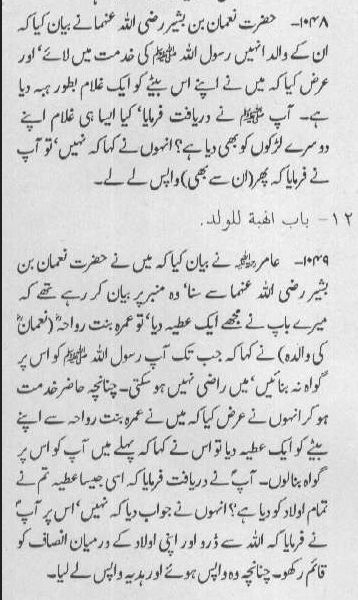 ۱۰۴۸- حضرت نعمان بن بشیر رضی اللہ عنہما نے بیان کیا کہ
ان کے والد انہیں رسول اللہ ﷺ کی خدمت میں لائے‘ اور
عرض کیا کہ میں نے اپنے اس بیٹے کو ایک غلام بطور ہبہ دیا
ہے۔ آپ ﷺ نے دریافت فرمایا‘ کیا ایسا ہی غلام اپنے
دوسرے لڑکوں کو بھی دیا ہے؟ انہوں نے کہا کہ نہیں‘ تو آپ
نے فرمایا کہ پھر (ان سے بھی) واپس لے لے۔
۱۲- باب الهبة للولد.
۱۰۴۹- عامر رضی اللہ عنہ نے بیان کیا کہ میں نے حضرت نعمان بن
بشیر رضی اللہ عنہما سے سنا‘ وہ منبر پر بیان کر رہے تھے کہ
میرے باپ نے مجھے ایک عطیہ دیا‘ تو عمرہ بنت رواحہؓ (نعمانؓ
کی والدہ) نے کہا کہ جب تک آپ رسول اللہ ﷺ کو اس پر
گواہ نہ بنائیں‘ میں راضی نہیں ہو سکتی۔ چنانچہ حاضر خدمت
ہو کر انہوں نے عرض کیا کہ میں نے عمرہ بنت رواحہ سے اپنے
بیٹے کو ایک عطیہ دیا تو اس نے کہا کہ پہلے میں آپ کو اس پر
گواہ بنا لوں۔ آپؐ نے دریافت فرمایا کہ اسی جیسا عطیہ تم نے
تمام اولاد کو دیا ہے؟ انہوں نے جواب دیا کہ نہیں‘ اس پر آپؐ
نے فرمایا کہ اللہ سے ڈرو اور اپنی اولاد کے درمیان انصاف کو
قائم رکھو۔ چنانچہ وہ واپس ہوئے اور ہدیہ واپس لے لیا۔